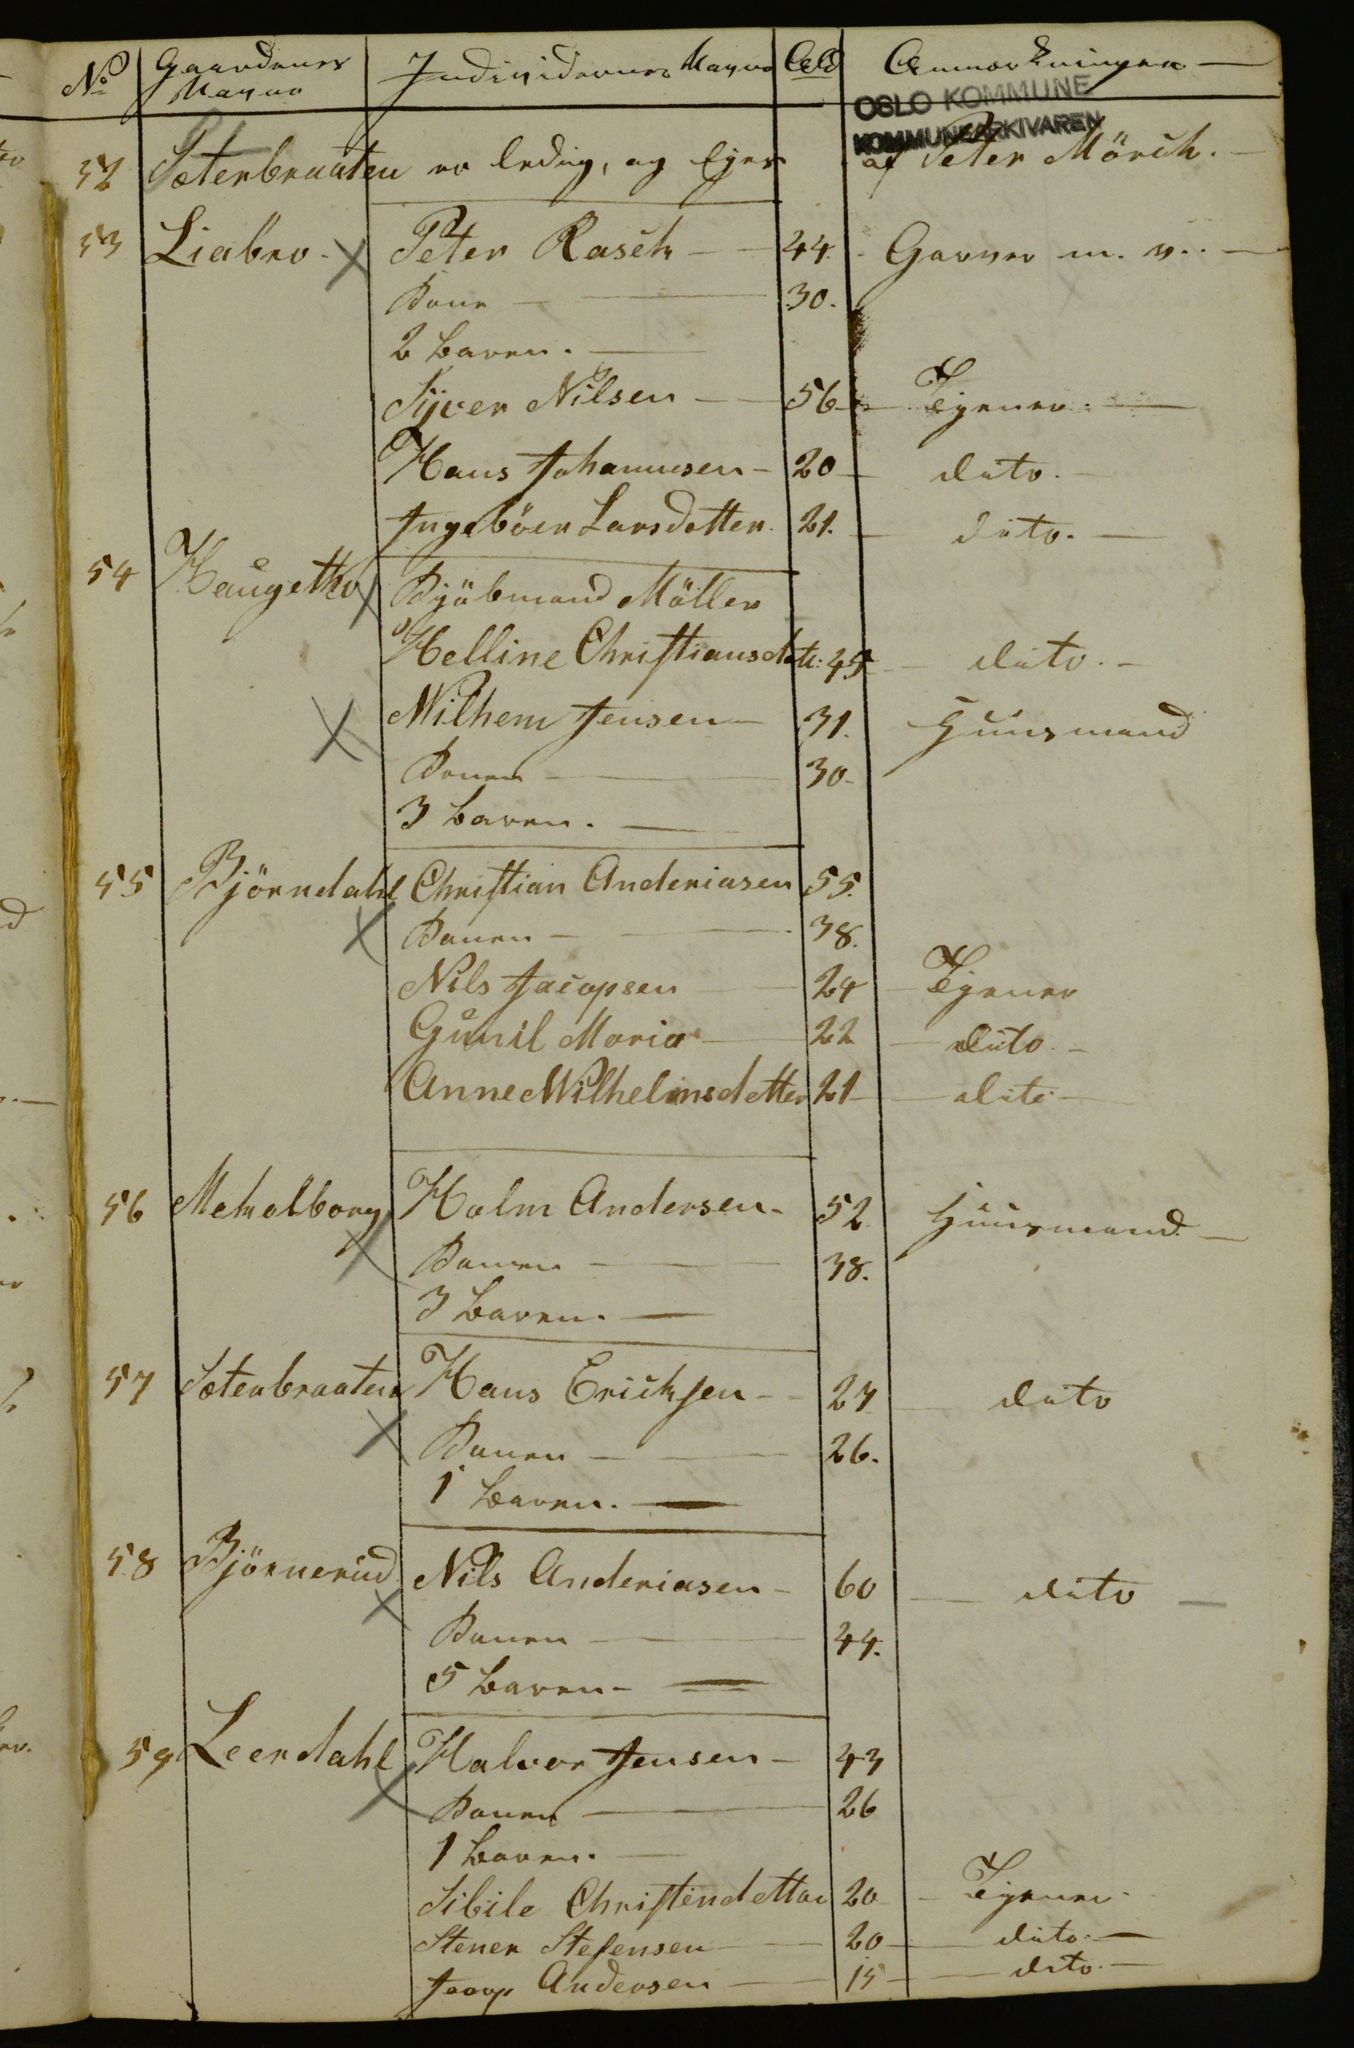 No Gaardenes Navne Individernes Navne Ald Anmærkninger
OSLO KOMMUNE
KOMMUNEARKIVAREN
52 Sæterbraaten er ledig, og Ejes af Peter Mörch.
53 Liabro Peter Rasch 44. Garver m. v.
Kone 30.
2 Børn.
Syver Nilsen 56 Tjener
Hans Johannesen 20 dito.
Ingebör Larsdatter. 21. dito.
54 Haugetho Kjöbmand Möller
Helline Christiansdtr: 45 dito.
Wilhem Jensen 31. Huusmand
Konen 30
3 Børn.
55 Björndahl Christian Anderiasen 55.
Konen 38.
Nils Jacopsen 24 Tjener
Gunil Maria 22 dito
Anne Wilhelmsdetter 21 dito
56 Mehælborg Holm Andersen 52 Huusmand
Konen 38.
3 Børn.
57 Sæterbraaten Hans Ericksen 27 dito
Konen 26.
1 Børn.
58 Björnerud Nils Anderiasen 60 dito
Konen 44.
5 Børn
59 Leerdahl Halvor Jensen 43
Konen 26
1 Børn.
Sibile Christendatter 20 Tjener
Stener Stefensen 20 dito
Jacop Andersen 15 dito